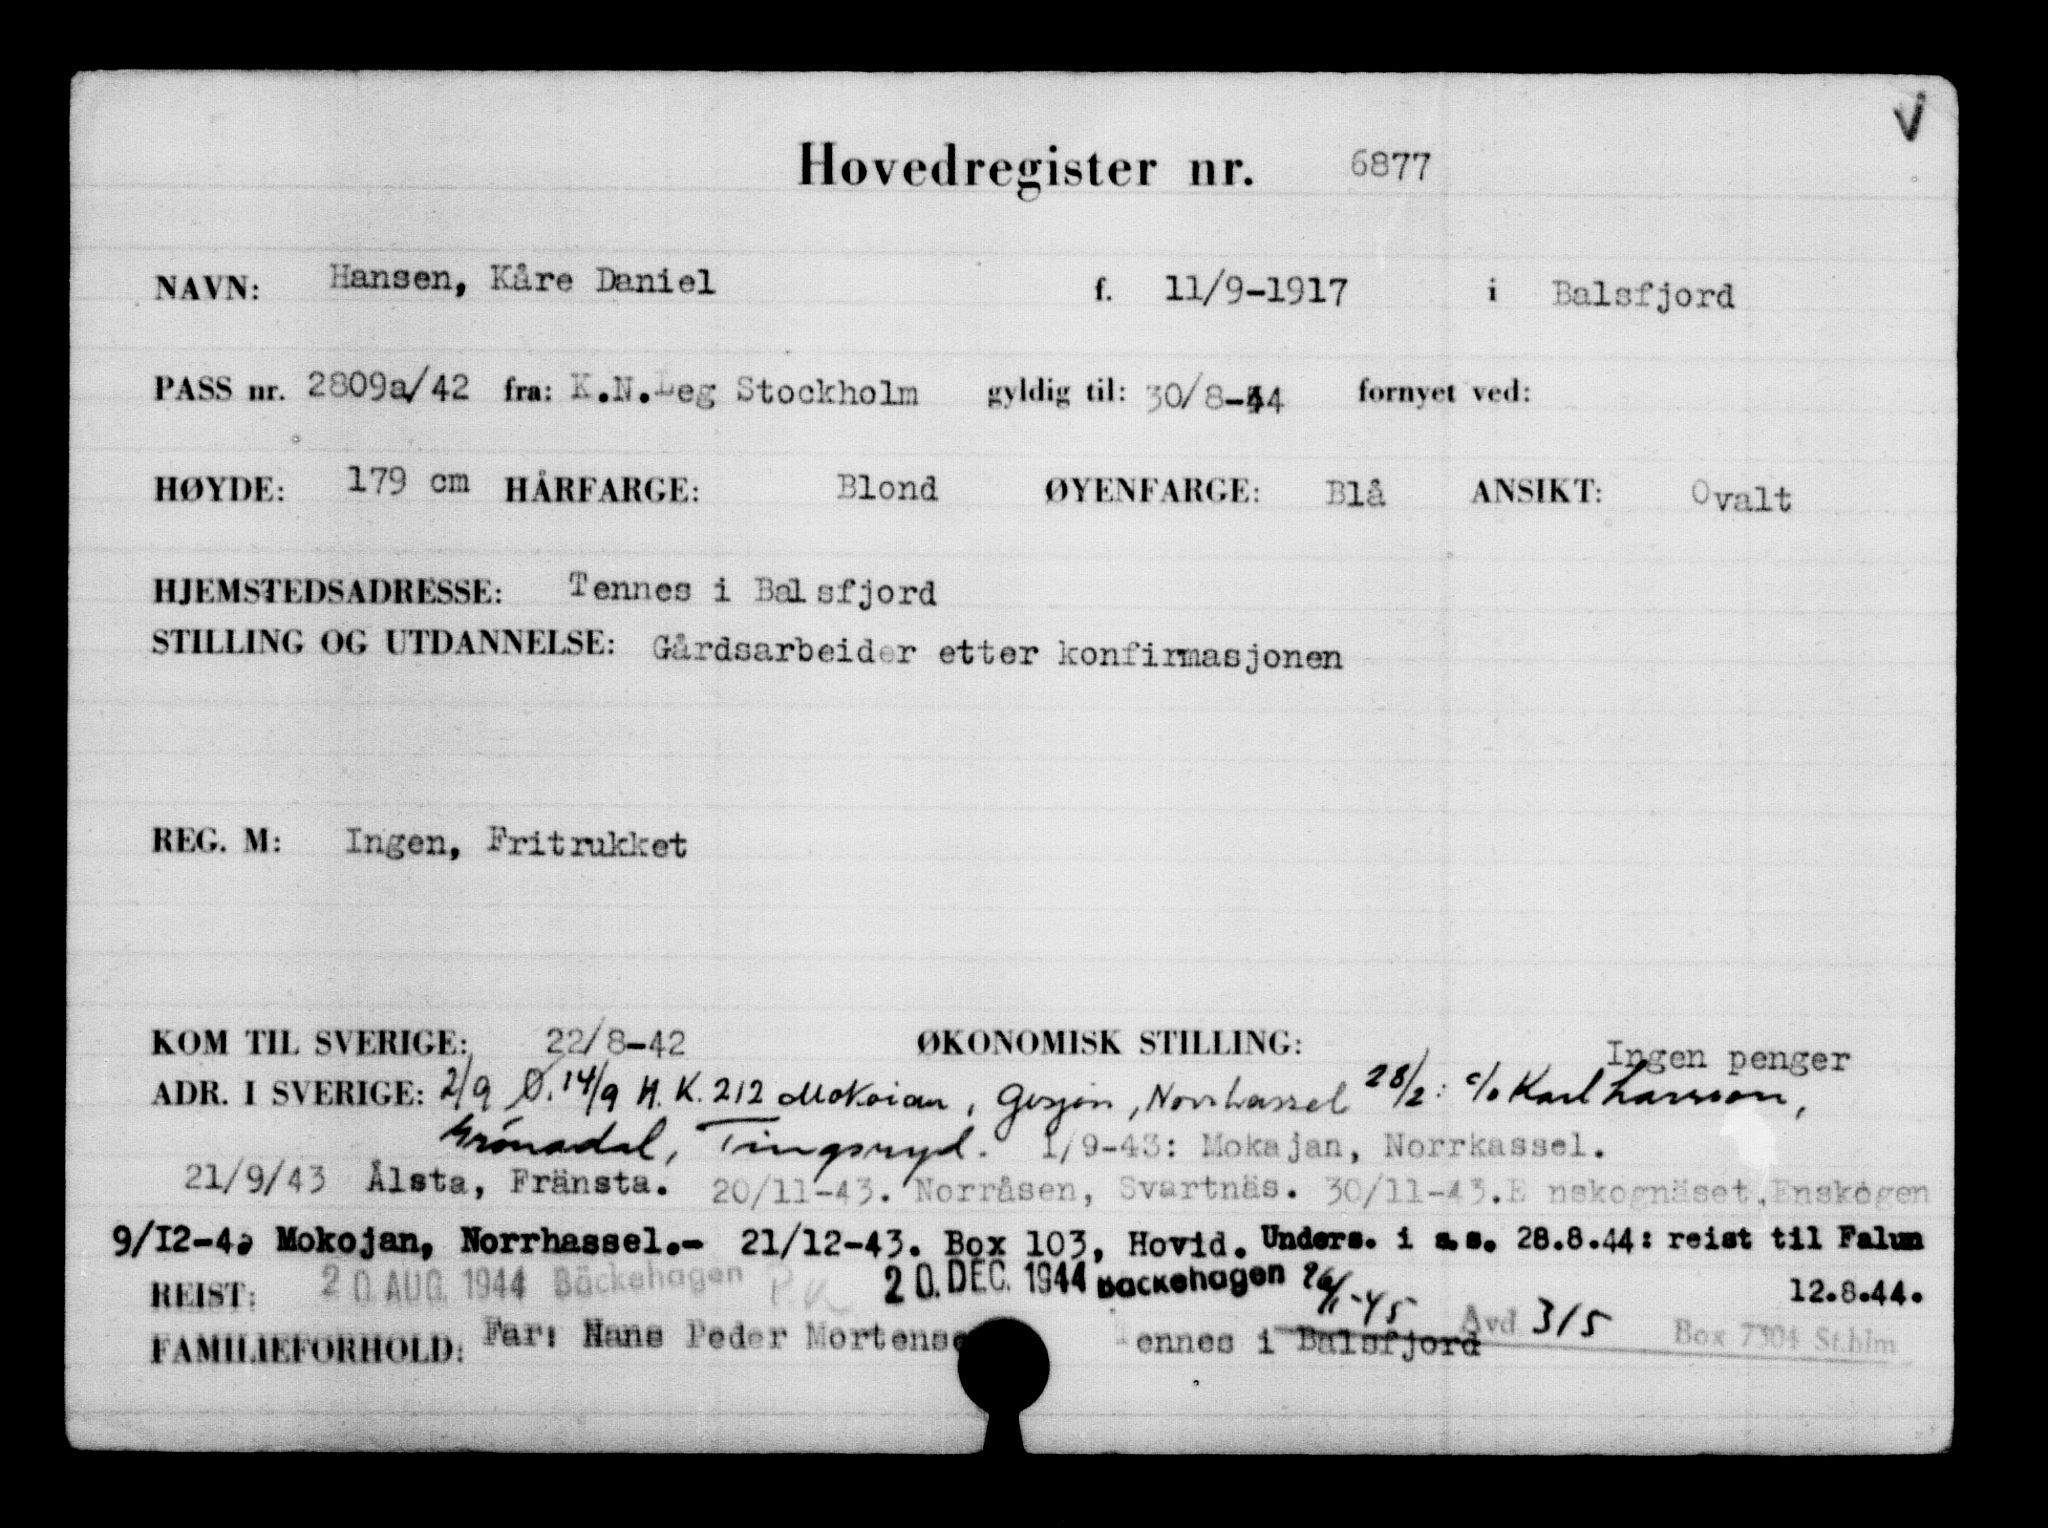 Hovedregister nr. 6877
NAVN: Hansen, Kåre Daniel f. 11/9-1917 i Balsfjord
PASS nr. 2809a/42 fra: K.N.Leg Stockholm gyldig til: 30/8-44 fornyet ved:
HØYDE: 179 cm HÅRFARGE: Blond ØYENFARGE: Blå ANSIKT: Ovalt
HJEMSTEDSADRESSE: Tennes i Balsfjord
STILLING OG UTDANNELSE: Gårdsarbeider etter konfirmasjonen
REG. M: Ingen, Fritrukket
KOM TIL SVERIGE: 22/8-42 ØKONOMISK STILLING: Ingen penger
ADR. I SVERIGE: 2/9 Ø. 14/9 H.K. 212 Mokoian, Gesjön, Norrhassel 28/2: c/o Karl Larsson,
Grönadal, Tingsryd. 1/9-43: Mokajan, Norrkassel.
21/9/43 Ålsta, Fränsta. 20/11-43. Norråsen, Svartnäs. 30/11-43. Enskognäset, Enskogen
9/12-43 Mokojan, Norrhassel.- 21/12-43. Box 103, Hovid. Unders. i a.s. 28.8.44: reist til Falun
12.8.44.
REIST: 20 AUG. 1944 Bäckehagen 20. DEC. 1944 Bäckehagen 26/1-45
FAMILIEFORHOLD: Far: Hans Peder Mortense Tennes i Balsfjord Avd 315 Box 7304 St.hlm